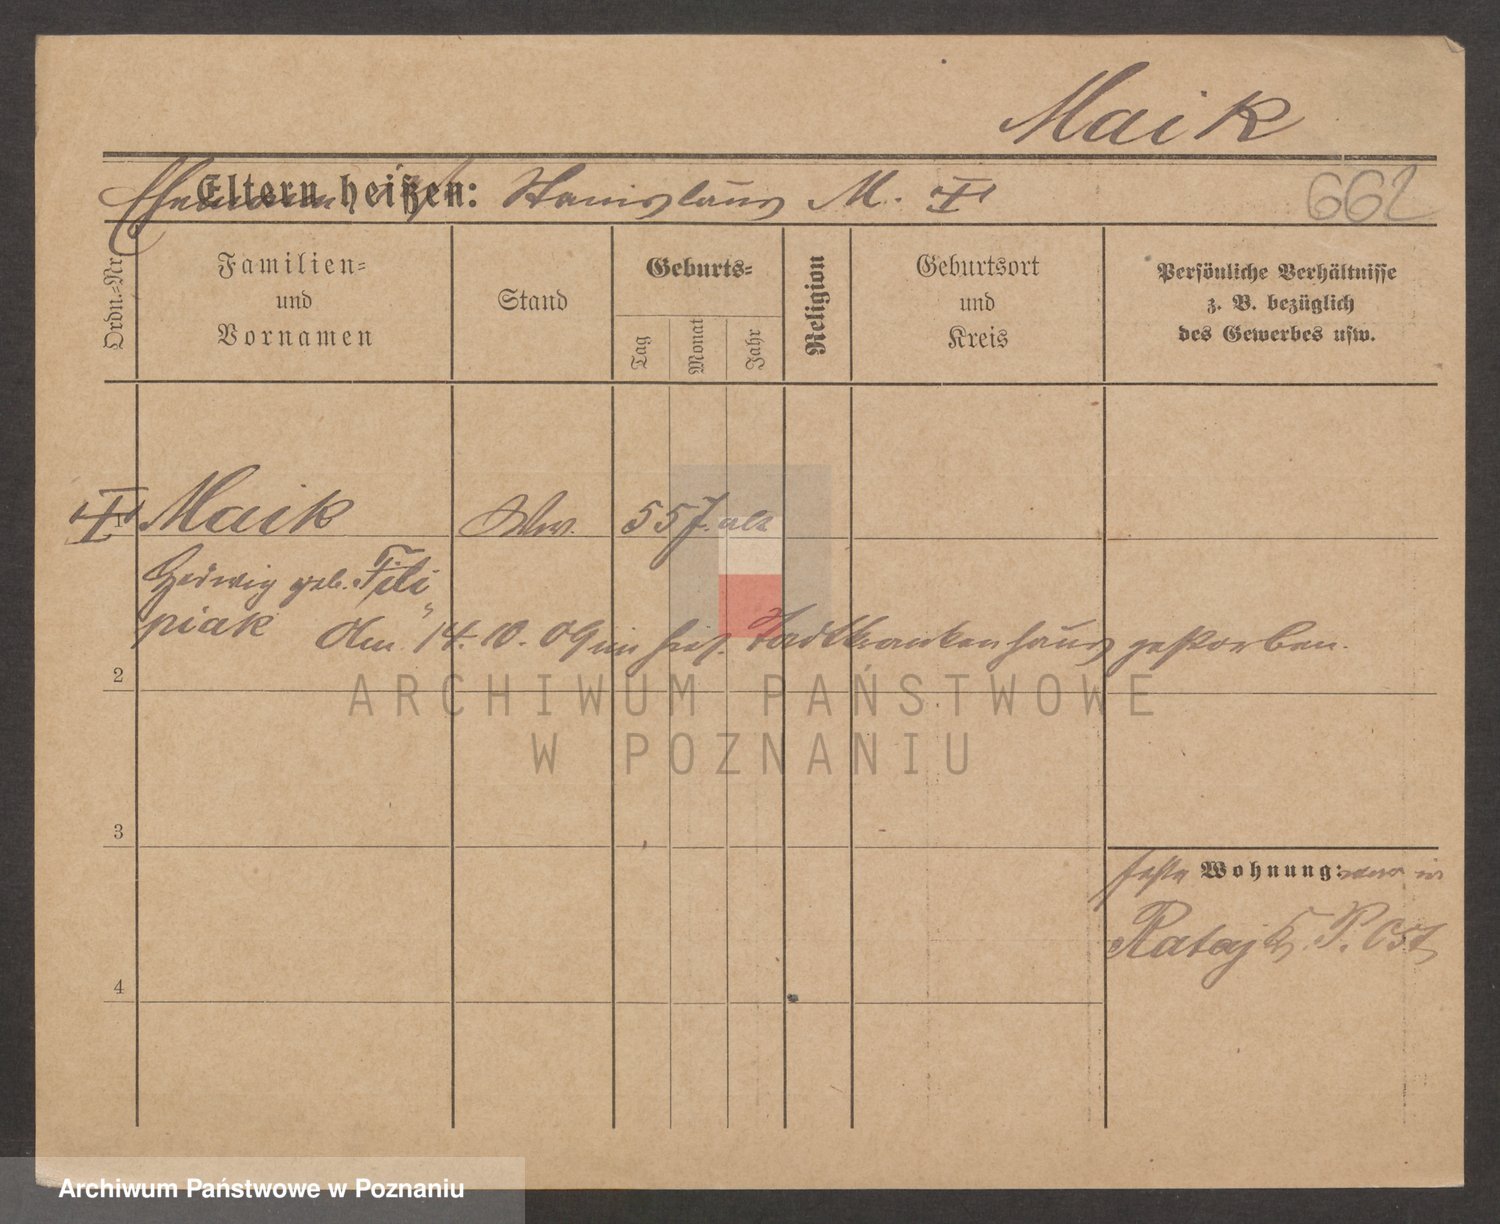 Maik
Eltern heißen: Stanislaus M. 662
Ordn.-Nr.
Familien-
und
Vornamen
Stand
Geburts-
Tag
Monat
Jahr
Religion
Geburtsort
und
Kreis
Persönliche Verhältnisse
z. B. bezüglich
des Gewerbes usw.
1 Maik Ww. 55 J. alt
Hedwig geb. Fili
piak Am 14. 10. 09 im hies. Stadtkrankenhaus gestorben.
2
ARCHIWUM PAŃSTWOWE
W POZNANIU
3
Wohnung: war in
Rataj P. Ost
4
Archiwum Państwowe w Poznaniu